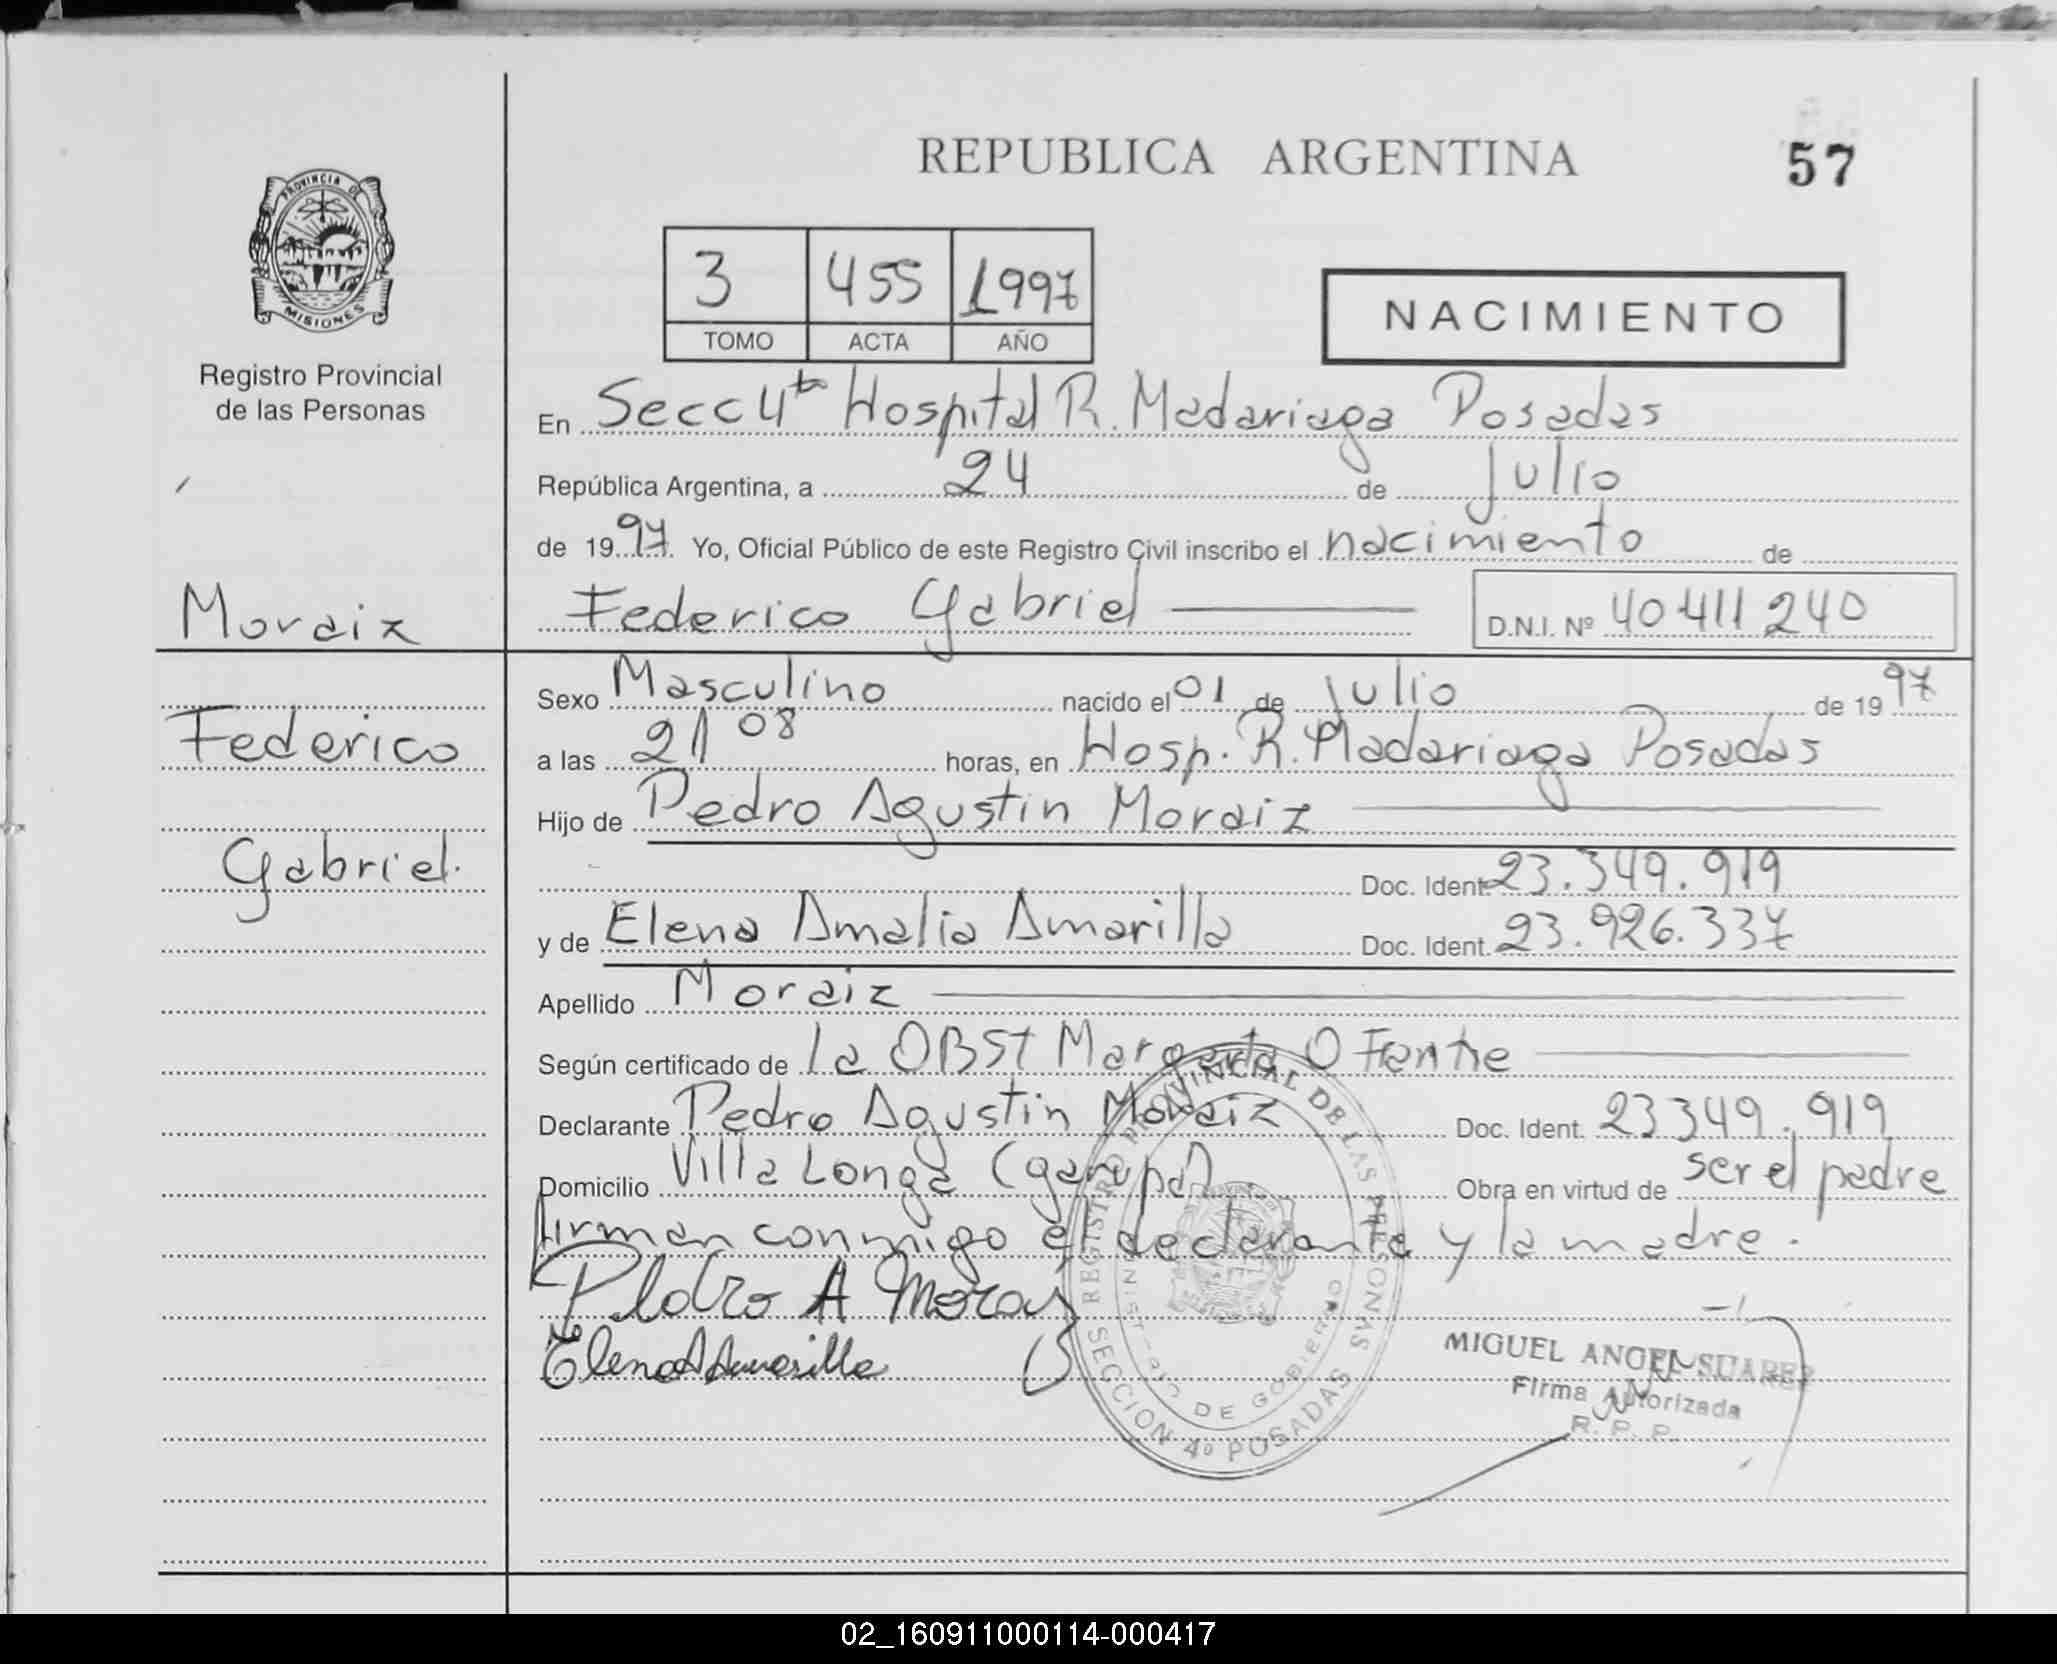 REPUBLICA ARGENTINA
57
PROVINCIA DE
MISIONES
Registro Provincial
de las Personas
3 455 1997
TOMO ACTA AÑO
NACIMIENTO
En Secc 4ta Hospital R. Madariaga Posadas
República Argentina, a 24 de Julio
de 1997. Yo, Oficial Público de este Registro Civil inscribo el nacimiento de
Moraiz
Federico Gabriel
D.N.I. Nº 40411240
Sexo Masculino nacido el 01 de Julio de 1997
Federico
a las 21 08 horas, en Hosp. R. Madariaga Posadas
Hijo de Pedro Agustin Moraiz
Gabriel.
Doc. Ident. 23.349.919
y de Elena Amalia Amarilla Doc. Ident. 23.926.337
Apellido Moraiz
Según certificado de la OBST Margarita O
Declarante Pedro Agustin Moraiz Doc. Ident. 23349.919
Domicilio Villa Longa (garupa) Obra en virtud de ser el padre
firman conmigo el declarante y la madre.
Pedro A Moraiz
Elena A Amarilla
REGISTRO PROVINCIAL DE LAS PERSONAS
MINISTERIO DE GOBIERNO
SECCION 4º POSADAS
MIGUEL ANGEL SUAREZ
Firma Autorizada
R. P. P.
02_160911000114-000417